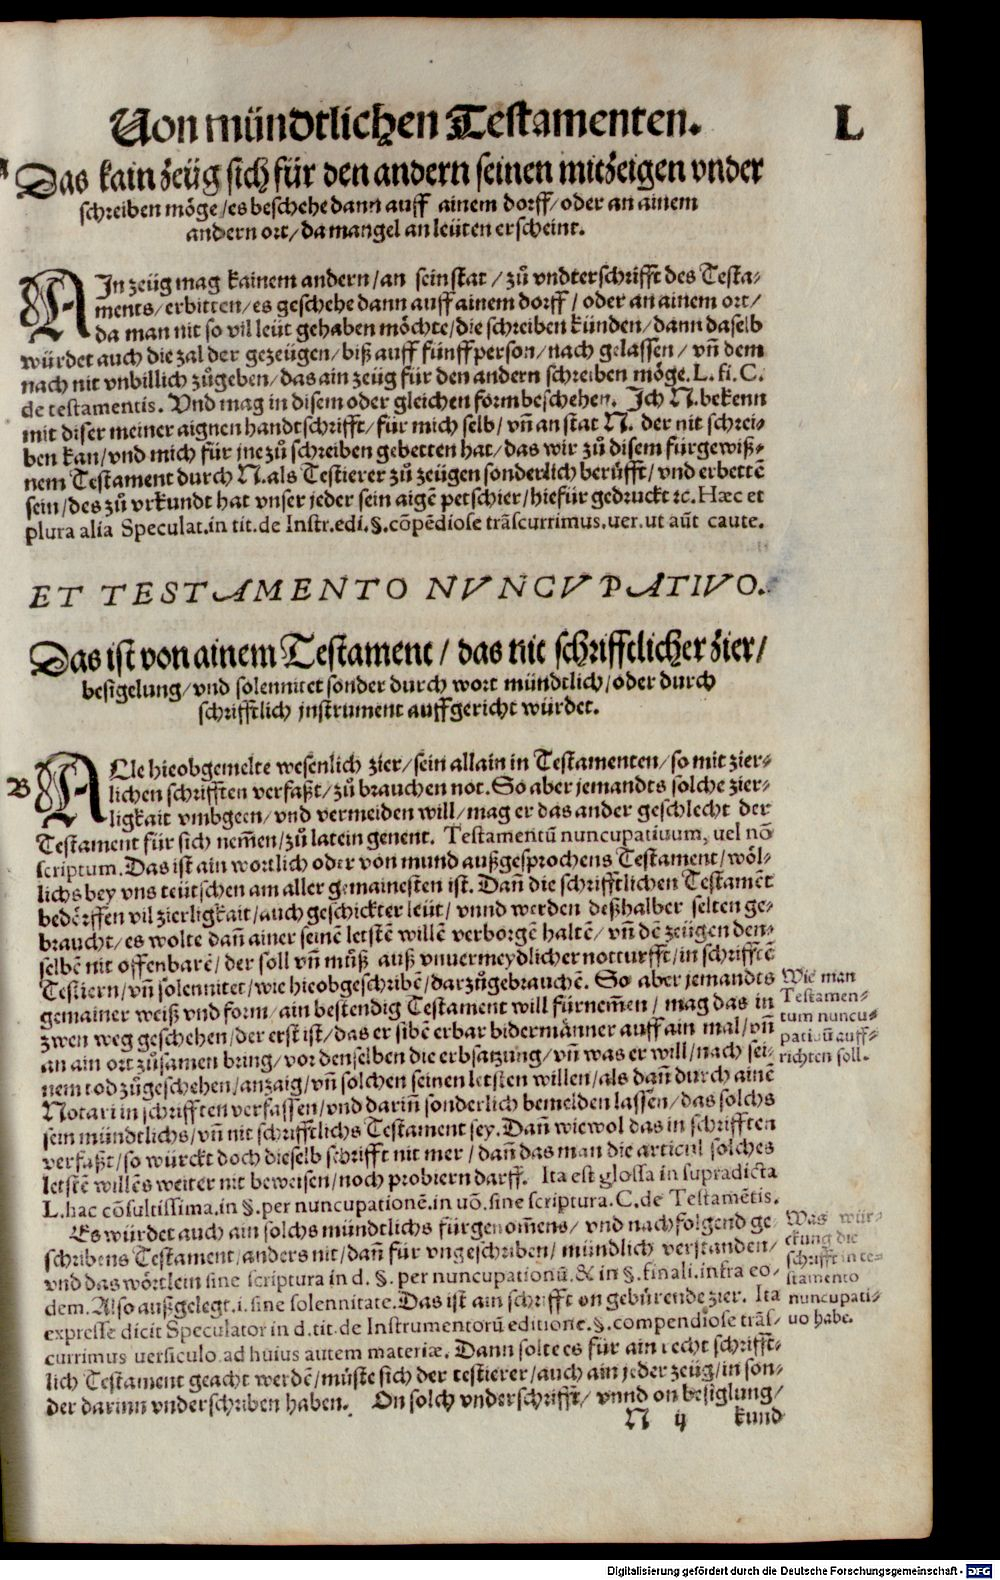 Von mündtlichen Testamenten. L
A
Das kain zeüg sich für den andern seinen mitzeigen vnder
schreiben möge/es beschehe dann auff ainem dorff/oder an ainem
andern ort/da mangel an leüten erscheint.
AIn zeüg mag kainem andern/an sein stat/zů vndterschrifft des Testa-
ments/erbitten/es geschehe dann auff ainem dorff/oder an ainem ort/
da man nit so vil leüt gehaben möchte/die schreiben künden/dann daselb
würdet auch die zal der gezeügen/biß auff fünff person/nach gelassen/vñ dem
nach nit vnbillich zůgeben/das ain zeüg für den andern schreiben möge. L. fi. C.
de testamentis. Vnd mag in disem oder gleichen form beschehen. Jch N. bekenn
mit diser meiner aignen handtschrifft/für mich selb/vñ an stat N. der nit schrei-
ben kan/vnd mich für jne zů schreiben gebetten hat/das wir zů disem fürgewiß-
nem Testament durch N. als Testierer zů zeügen sonderlich berůfft/vnd erbettẽ
sein/des zů vrkundt hat vnser jeder sein aigẽ petschier/hiefür gedruckt ꝛc. Hæc et
plura alia Speculat. in tit. de Instr. edi. §. cõpẽdiose trãscurrimus. uer. ut aũt caute.
ET TESTAMENTO NVNCVPATIVO.
Das ist von ainem Testament/das nit schrifftlicher zier/
besigelung/vnd solennitet sonder durch wort mündtlich/oder durch
schrifftlich jnstrument auffgericht würdet.
B
ALle hieobgemelte wesenlich zier/sein allain in Testamenten/so mit zier-
lichen schrifften verfaßt/zů brauchen not. So aber jemandts solche zier-
ligkait vmbgeen/vnd vermeiden will/mag er das ander geschlecht der
Testament für sich nem̃en/zů latein genent. Testamentũ nuncupatiuum, uel nõ
scriptum. Das ist ain wortlich oder von mund außgesprochens Testament/wöl-
lichs bey vns teütschen am aller gemainesten ist. Dañ die schrifftlichen Testamẽt
bedẽrffen vil zierligkait/auch geschickter leüt/vnnd werden deßhalber selten ge-
braucht/es wolte dañ ainer seinẽ letstẽ willẽ verborgẽ haltẽ/vñ dẽ zeügen den-
selbẽ nit offenbarẽ/der soll vñ můß auß vnuermeydlicher notturfft/in schrifftẽ
Testiern/vñ solennitet/wie hieobgeschribẽ/darzůgebrauchẽ. So aber jemandts
gemainer weiß vnd form/ain bestendig Testament will fürnem̃en/mag das in
zwen weg geschehen/der erst ist/das er sibẽ erbar bidermänner auff ain mal/vñ
an ain ort zůsamen bring/vor denselben die erbsatzung/vñ was er will/nach sei-
nem tod zůgeschehen/anzaig/vñ solchen seinen letsten willen/als dañ durch ainẽ
Notari in schrifften verfassen/vnd dariñ sonderlich bemelden lassen/das solchs
sein mündtlichs/vñ nit schrifftlichs Testament sey. Dañ wiewol das in schrifften
verfaßt/so würckt doch dieselb schrifft nit mer/dañ das man die articul solches
letstẽ willẽs weiter nit beweisen/noch probiern darff. Ita est glossa in supradicta
L. hac cõsultissima. in §. per nuncupationẽ. in uõ. sine scriptura. C. de Testamẽtis.
Es würdet auch ain solchs mündtlichs fürgenom̃ens/vnd nachfolgend ge-
schribens Testament/anders nit/dañ für vngeschriben/mündlich verstanden/
vnd das wörtlein sine scriptura in d. §. per nuncupationũ. & in §. finali. infra eo-
dem. Also außgelegt. i. sine solennitate. Das ist ain schrifft on gebürende zier. Ita
expresse dicit Speculator in d. tit. de Instrumentorũ editione. §. compendiose trãs-
currimus uersiculo. ad huius autem materiæ. Dann solte es für ain recht schrifft-
lich Testament geacht werdẽ/müste sich der testierer/auch ain jeder zeüg/in son-
der darinn vnderschriben haben. On solch vnderschrifft/vnnd on besiglung/
N ij kund
Wie man
Testamen-
tum nuncu-
patiuũ auff-
richten soll.
Was wür-
ckung die
schrifft in te-
stamento
nuncupati-
uo habe.
Digitalisierung gefördert durch die Deutsche Forschungsgemeinschaft - DFG